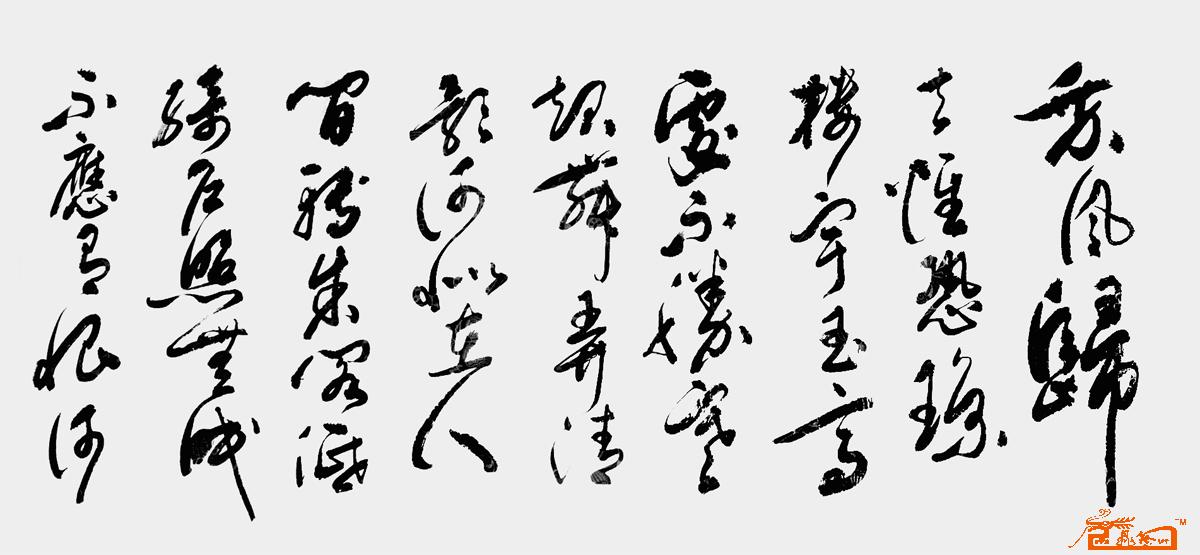 乘风歸
去惟恐瓊
樓宇玉高
處不勝寒
起舞弄清
影何似在人
間轉朱閣低
綺戶照無眠
不應有恨何